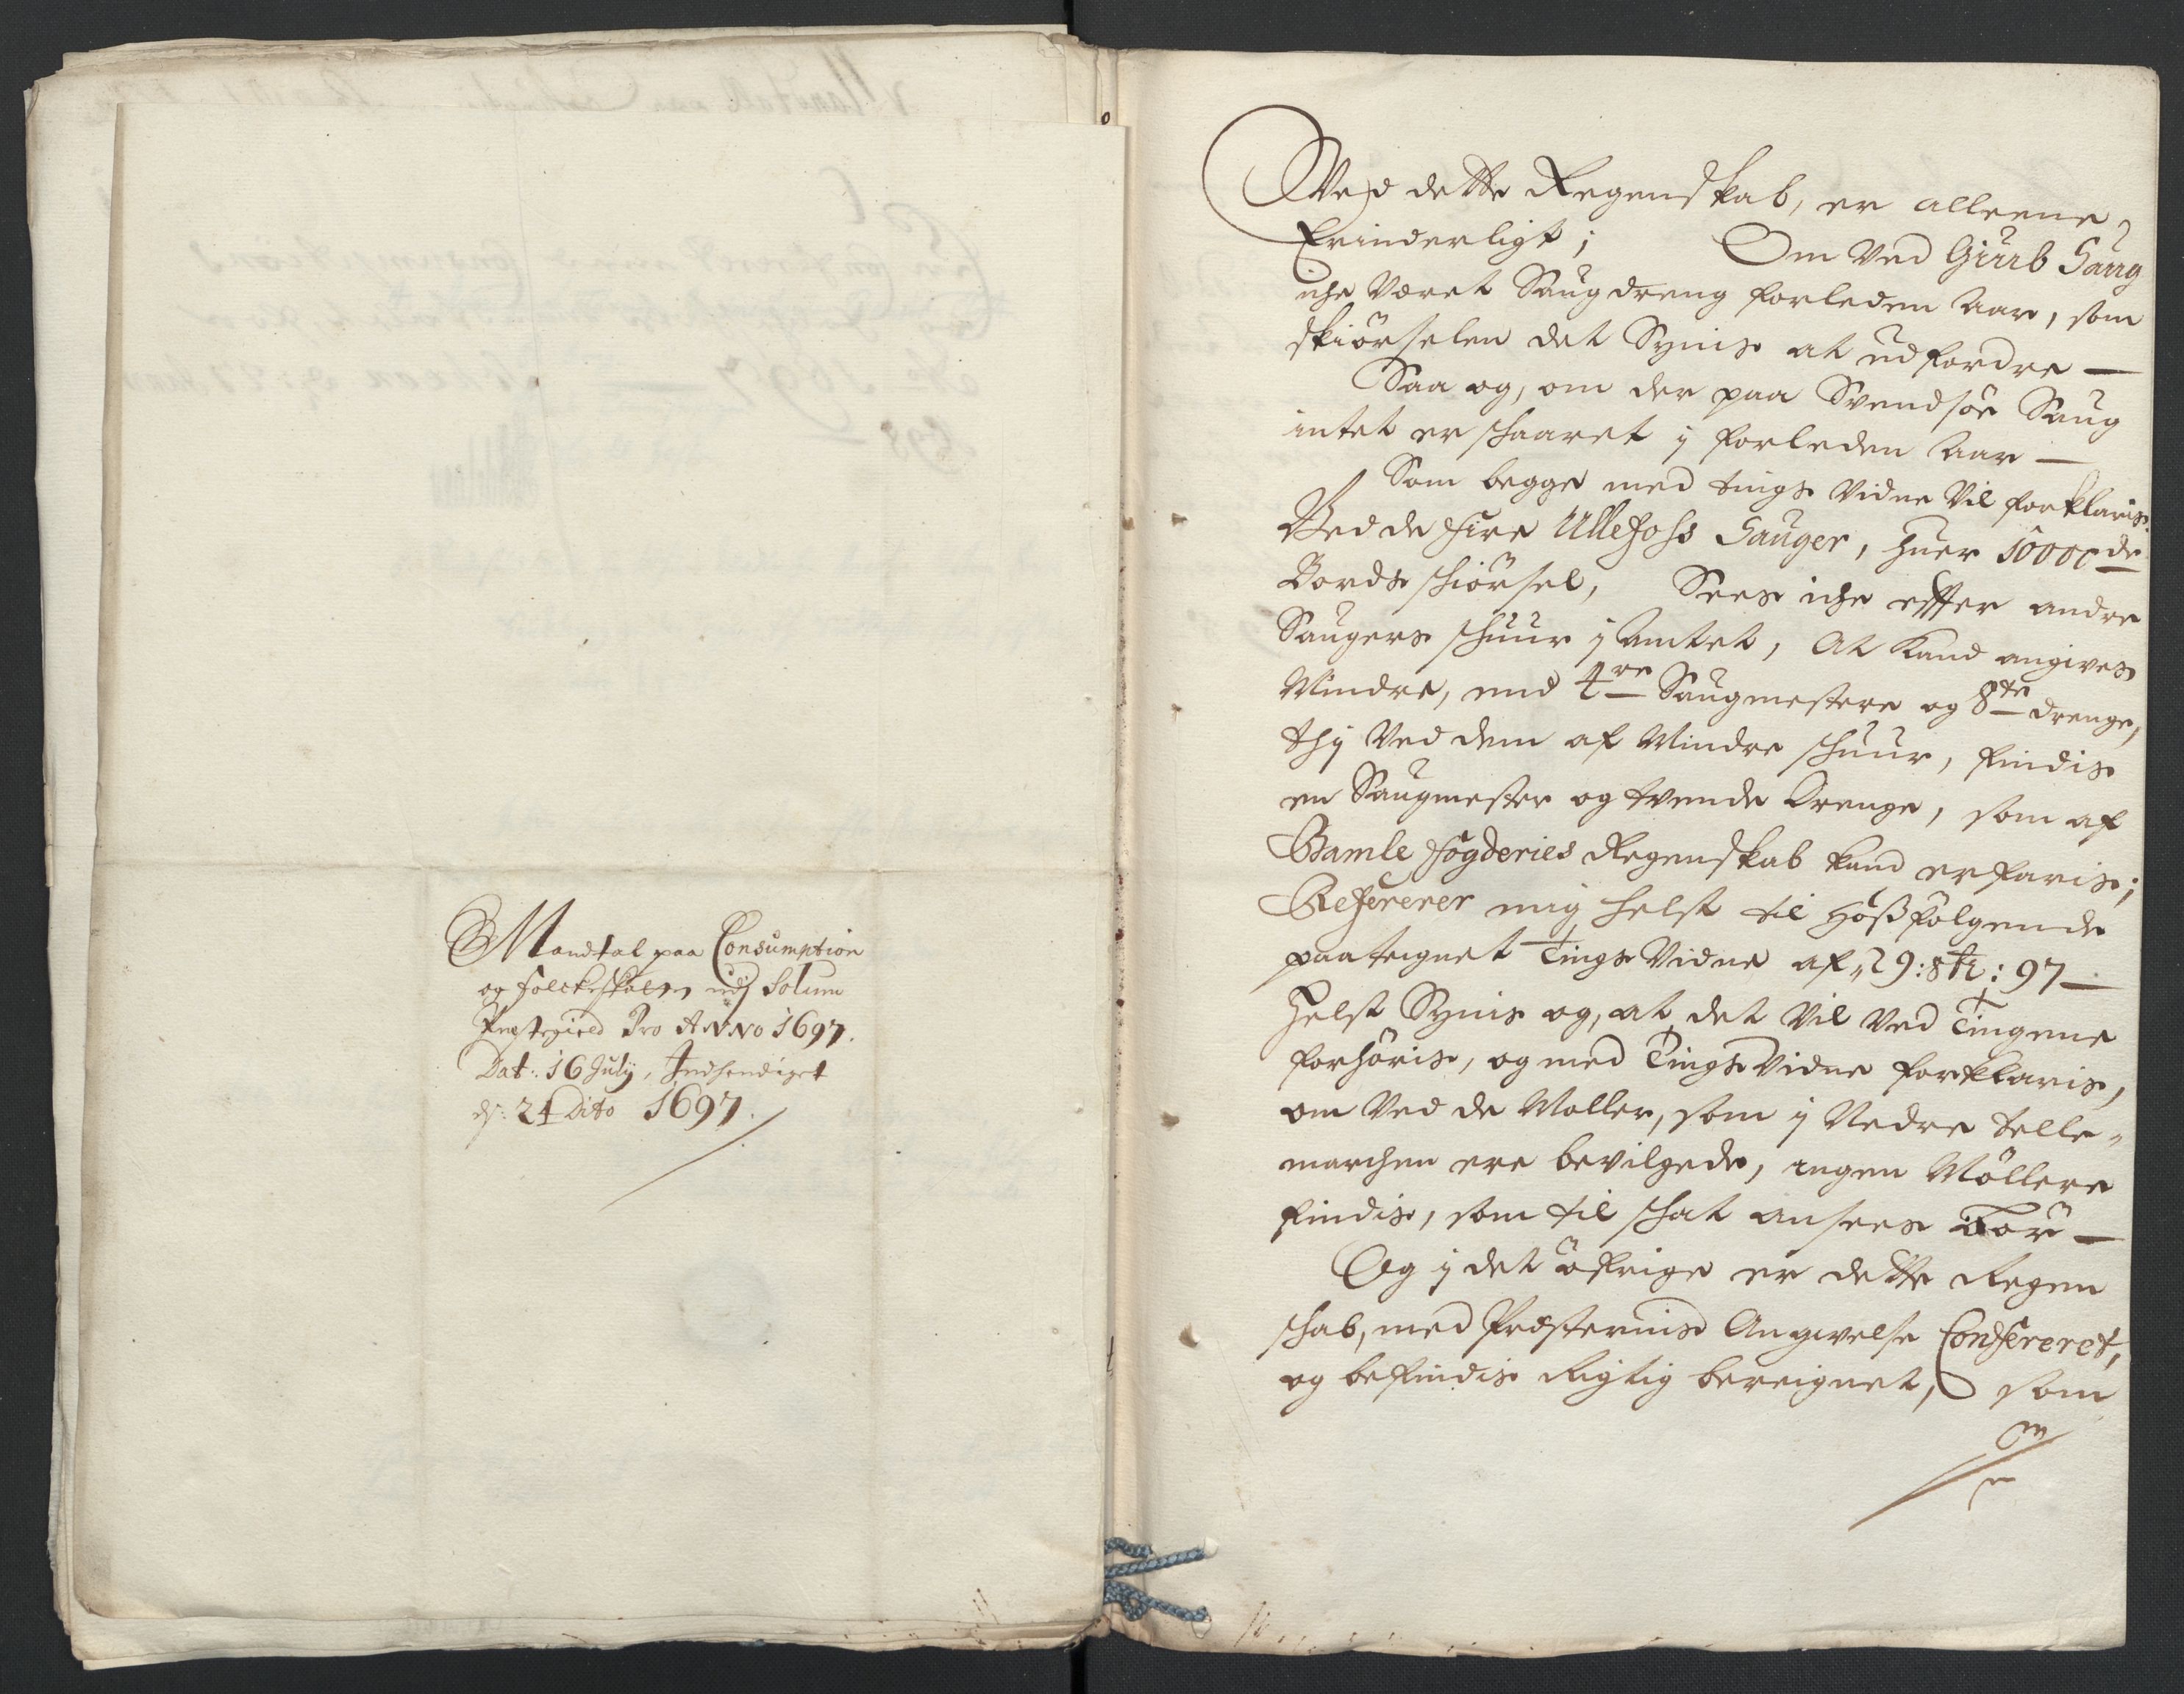 Mandtal paa Consumption
og folckeskatten udj Solum
Prestegield Pro ANNO 1697.
Dat: 16 July, Indhendiget
d: 24 Dito 1697.
Ved dette Regenskab, er alleene
Erinderligt; Om Ved Giurb Saug
iche Været Saugdreng forleden Aar, som
skiörselen det Synis at udfordre —
Saa og, om der paa Svendsöe Saug
intet er schaaret j forleden Aar —
Som begge med tings Vidne Vil forklaris.
Ved de fire Ullefoss Sauger, huer 10000de
Bords schiörsel, Sees iche effter andre
Saugers schuur j Amtet, At kand angives
Mindre, end 4re Saugmestere og 8te drenge,
thj Ved dem af Mindre schuur, findis
en Saugmester og tvende Drenge, som af
Bamle fögderies Regenskab kand erfaris;
Refererer mig helst til hosfölgende
paateignet Tings Vidne af 29: 8tr: 97 —
Helst Synis og, at det Vil Ved Tingene
forhöris, og med Tings Vidne forklaris,
om Ved de Møller, som j Nedre Telle-
marchen ere bevilgede, ingen Möllere
findis, som til schat ansees bör —
Og j det öfrige er dette Regen
schab, med Præsternis Angivelse Confereret,
og befindis Rigtig bereignet, som